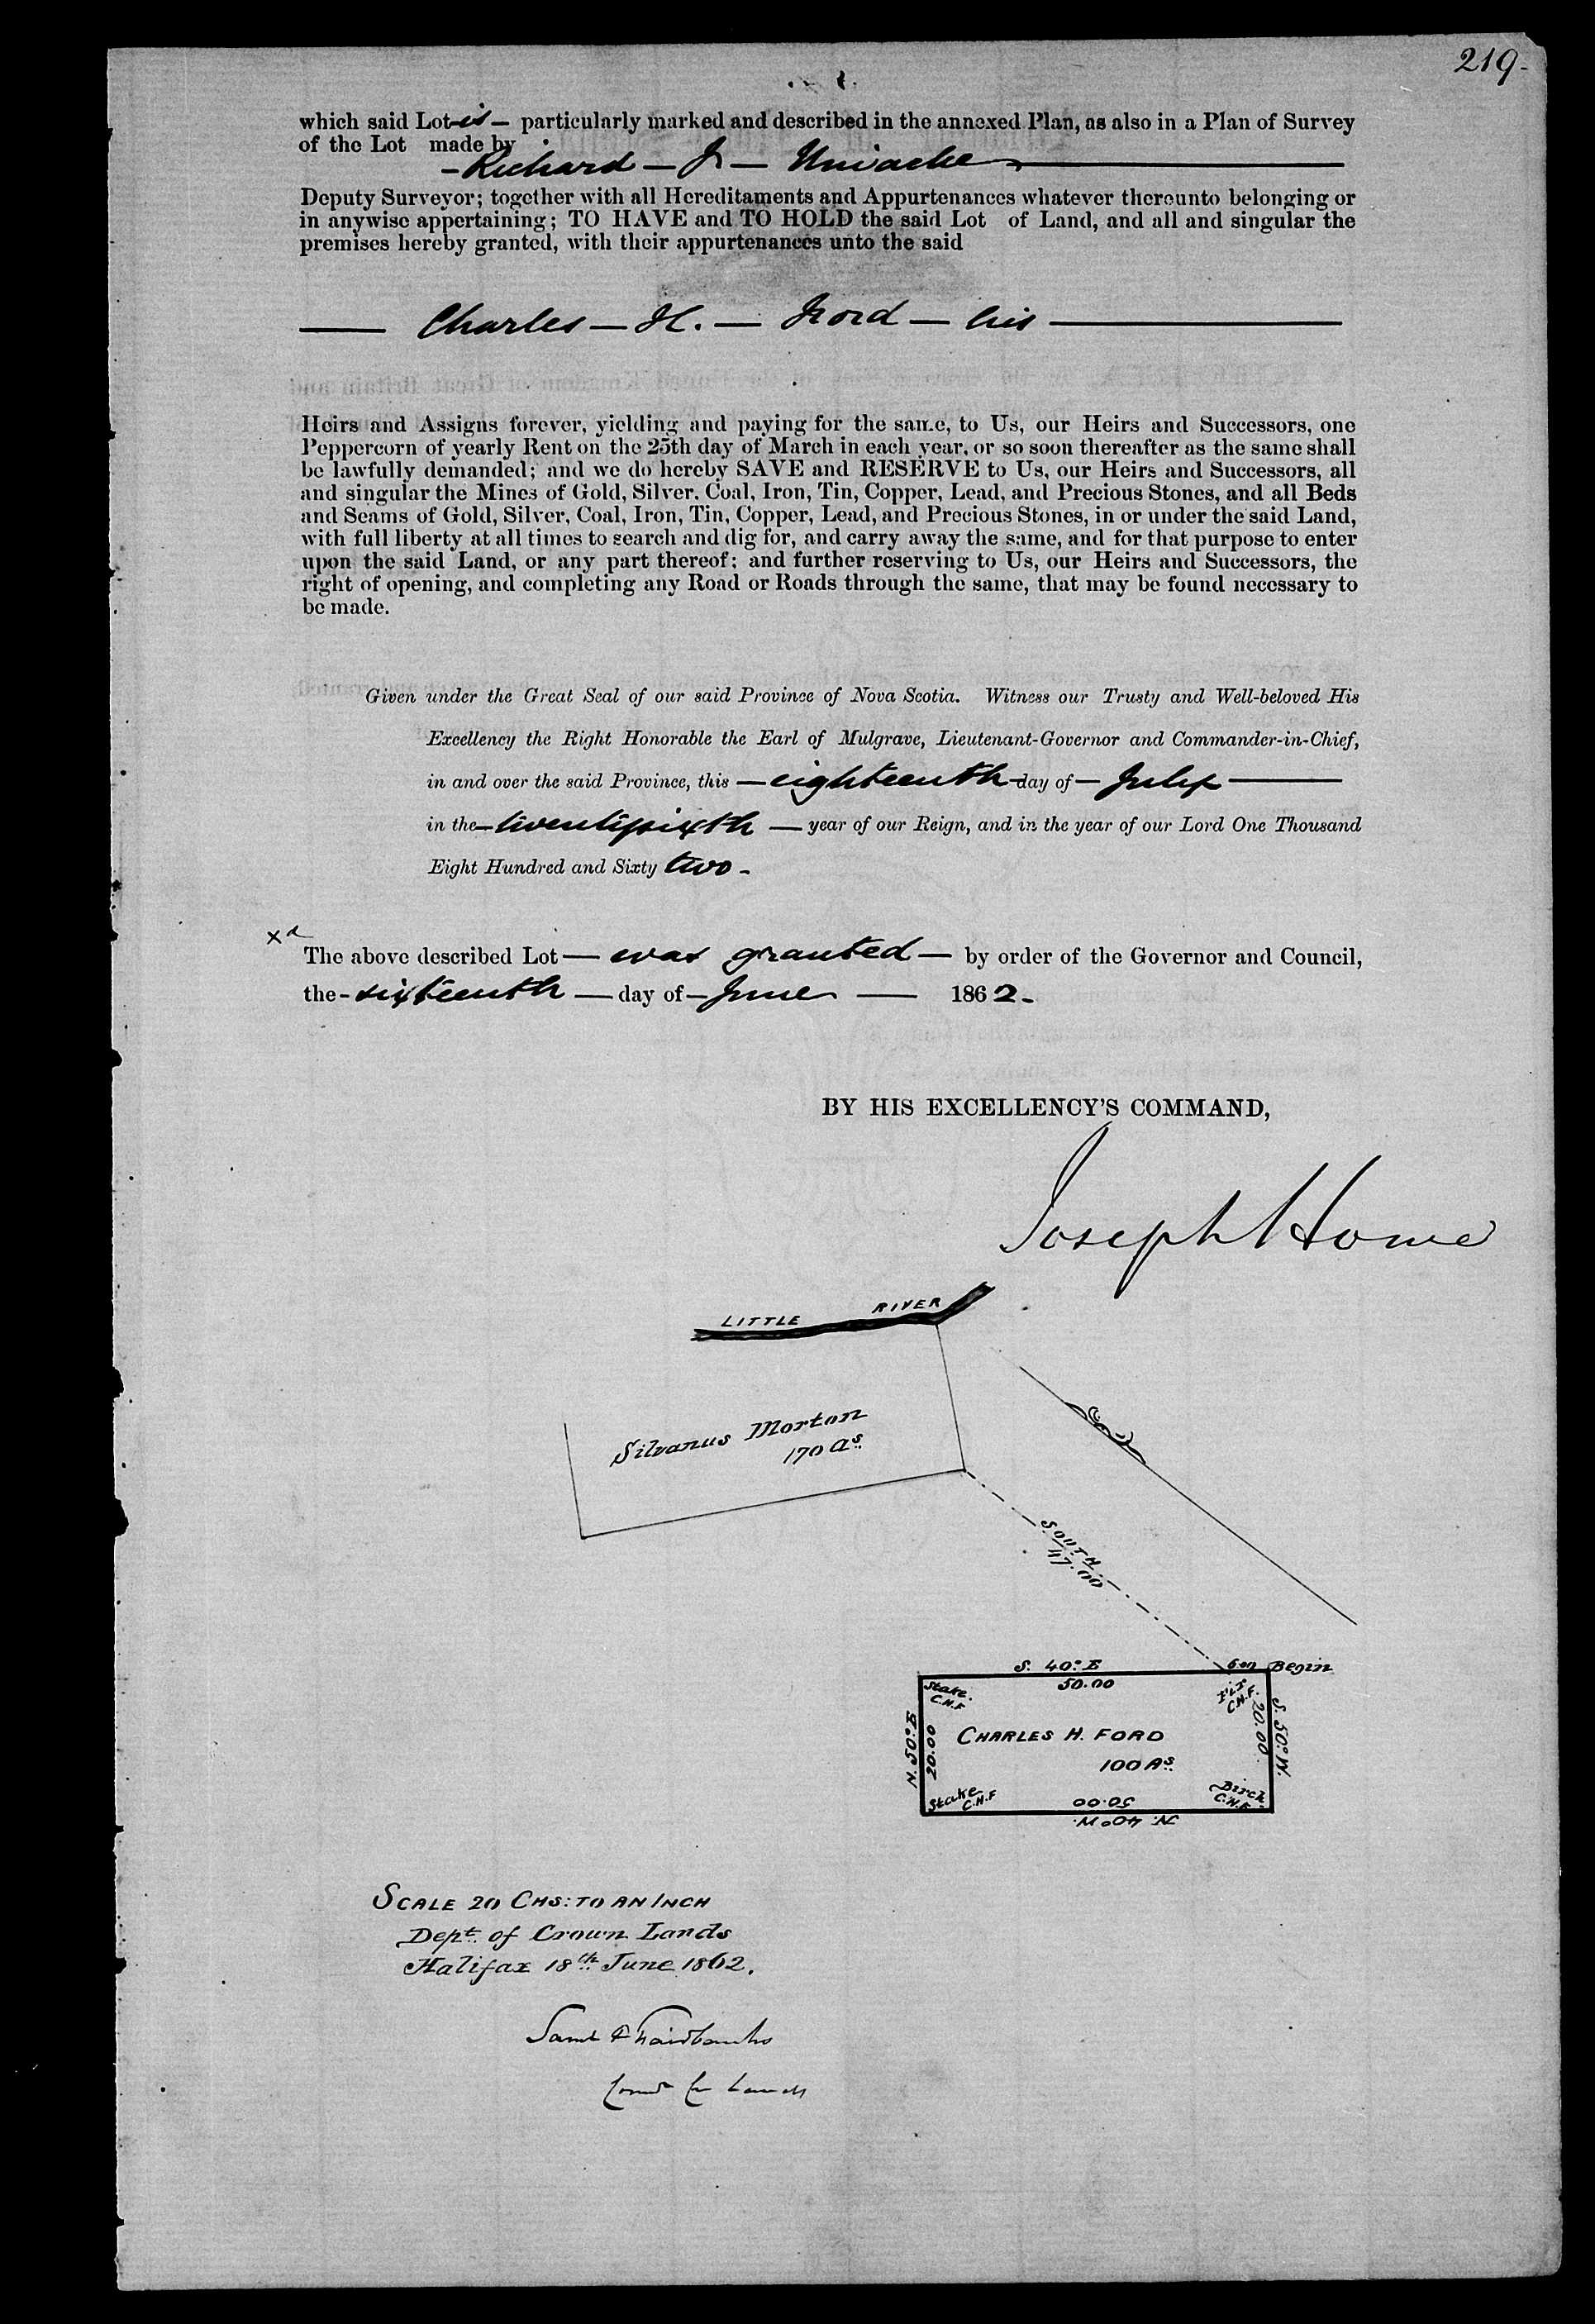 219-
which said Lot is — particularly marked and described in the annexed Plan, as also in a Plan of Survey
of the Lot made by
- Richard — J — Uniacke
Deputy Surveyor; together with all Hereditaments and Appurtenances whatever thereunto belonging or
in anywise appertaining; TO HAVE and TO HOLD the said Lot of Land, and all and singular the
premises hereby granted, with their appurtenances unto the said
— Charles — H. — Ford — his —
Heirs and Assigns forever, yielding and paying for the same, to Us, our Heirs and Successors, one
Peppercorn of yearly Rent on the 25th day of March in each year, or so soon thereafter as the same shall
be lawfully demanded; and we do hereby SAVE and RESERVE to Us, our Heirs and Successors, all
and singular the Mines of Gold, Silver, Coal, Iron, Tin, Copper, Lead, and Precious Stones, and all Beds
and Seams of Gold, Silver, Coal, Iron, Tin, Copper, Lead, and Precious Stones, in or under the said Land,
with full liberty at all times to search and dig for, and carry away the same, and for that purpose to enter
upon the said Land, or any part thereof; and further reserving to Us, our Heirs and Successors, the
right of opening, and completing any Road or Roads through the same, that may be found necessary to
be made.
Given under the Great Seal of our said Province of Nova Scotia. Witness our Trusty and Well-beloved His
Excellency the Right Honorable the Earl of Mulgrave, Lieutenant-Governor and Commander-in-Chief,
in and over the said Province, this — eighteenth day of — July —
in the — twentysixth — year of our Reign, and in the year of our Lord One Thousand
Eight Hundred and Sixty two -
The above described Lot — was granted — by order of the Governor and Council,
the - sixteenth — day of — June — 1862 -
BY HIS EXCELLENCY'S COMMAND,
Joseph Howe
LITTLE RIVER
Silvanus Morton
170 As.
SOUTH
47.00
S. 40° E
50.00
6.00 Begin
Stake
C.H.F
C.H.F.
S. 50° W.
20.00
N. 50° E
20.00
CHARLES H. FORD
100 As.
Stake
C.H.F
Birch
C.H.F.
50.00
N. 40° W.
SCALE 20 CHS: TO AN INCH
Dept. of Crown Lands
Halifax 18th June 1862.
Saml P Fairbanks
Comr Cr Lands